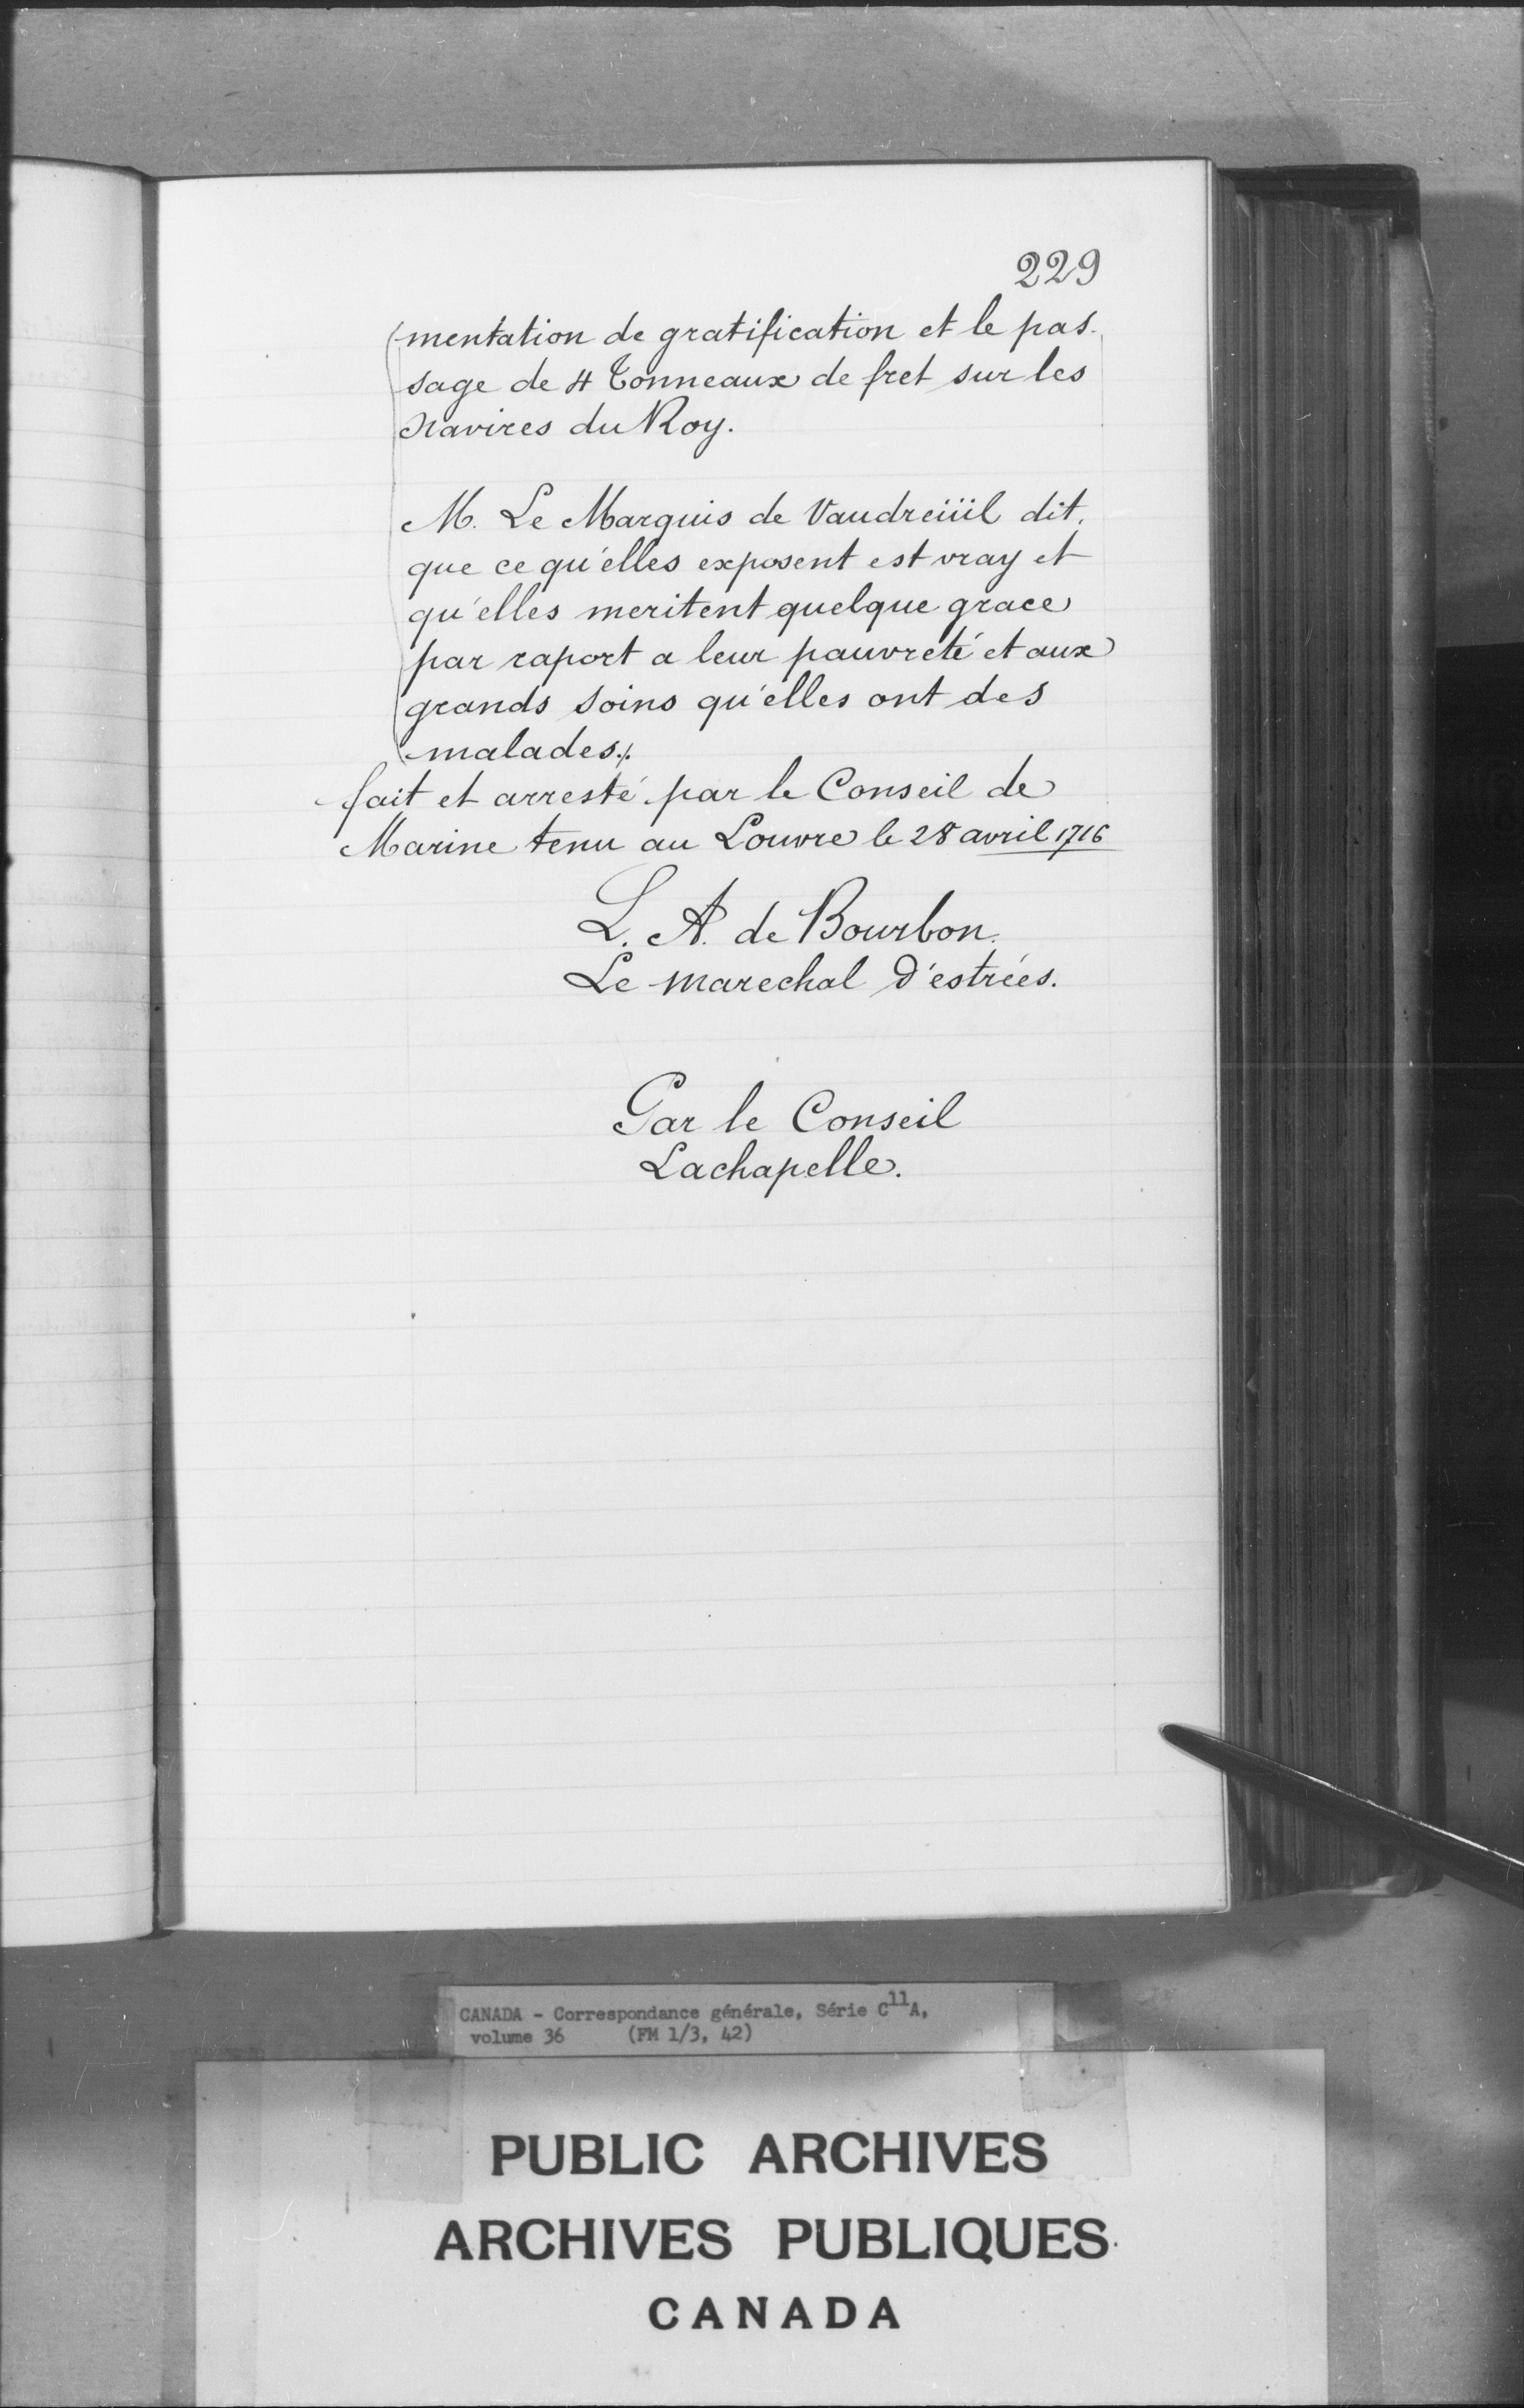 229
mentation de gratification et le pas-
sage de 4 Tonneaux de fret sur les
Navires du Roy.
M. Le Marquis de Vaudreüil dit,
que ce qu'elles exposent est vray et
qu'elles meritent quelque grace
par raport a leur pauvreté et aux
grands soins qu'elles ont des
malades./.
fait et arresté par le Conseil de
Marine tenu au Louvre le 28 avril 1716
L. A. de Bourbon.
Le marechal d'estrées.
Par le Conseil
Lachapelle.
CANADA - Correspondance générale, Série C11A,
volume 36 (FM 1/3, 42)
PUBLIC ARCHIVES
ARCHIVES PUBLIQUES
CANADA